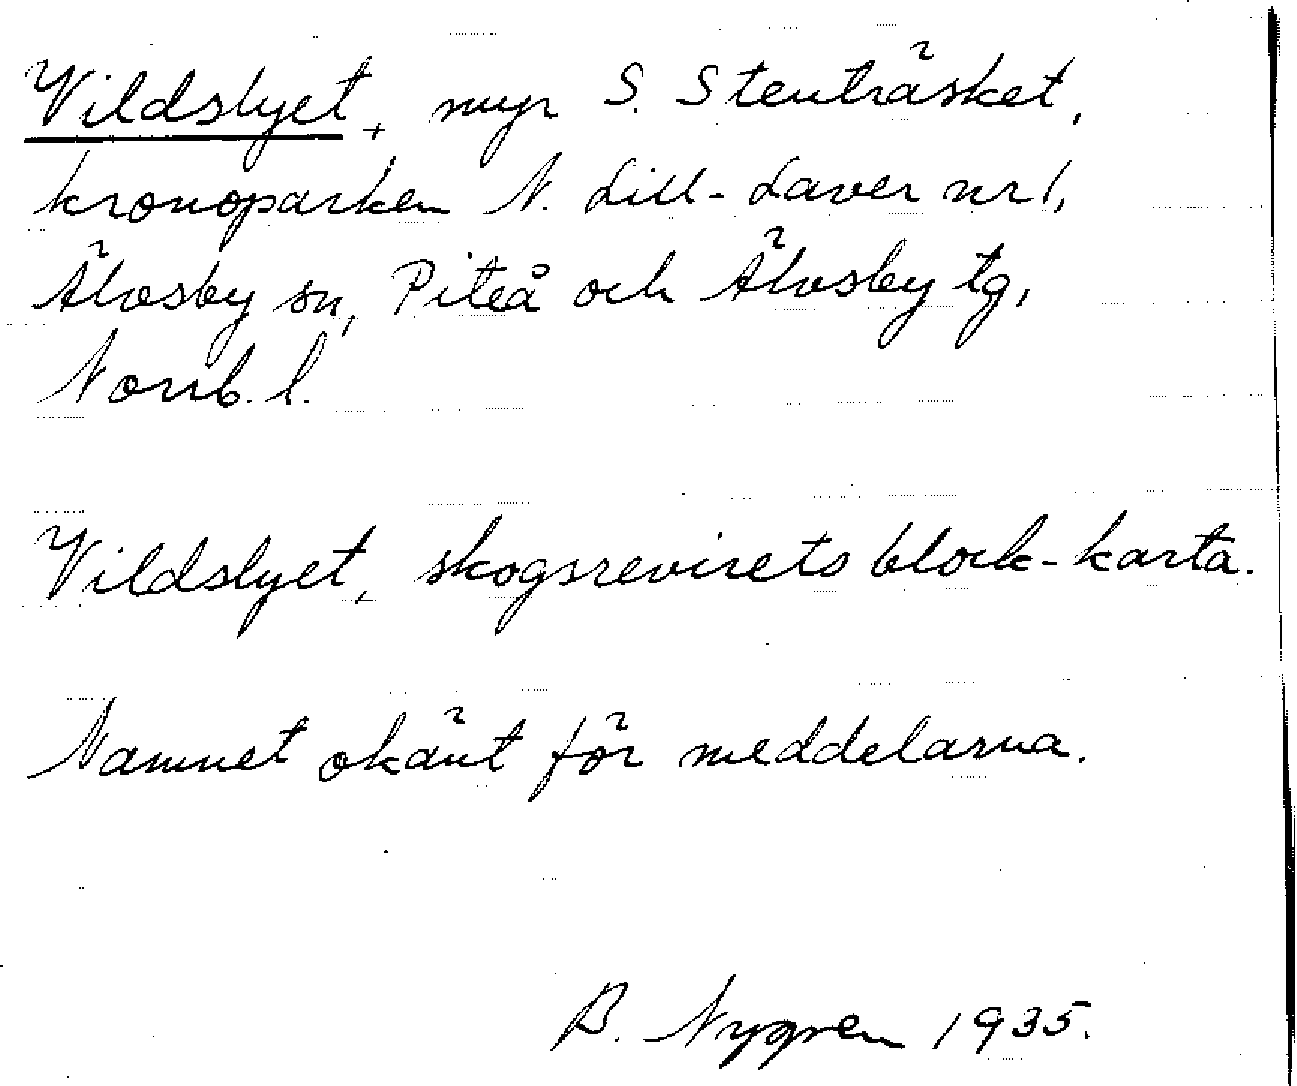 Vildslyet, myr S. Stenträsket,
kronoparken N. Lill-Laver nr 1,
Älvsby sn, Piteå och Älvsby tg,
Norrb. l.
Vildslyet, skogsrevirets block-karta.
Namnet okänt för meddelarna.
B. Nygren 1935.